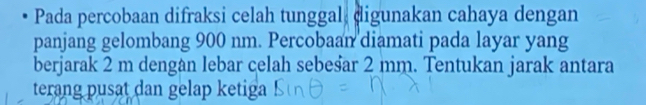 • Pada percobaan difraksi celah tunggal, digunakan cahaya dengan
panjang gelombang 900 nm. Percobaan diamati pada layar yang
berjarak 2 m dengan lebar celah sebesar 2 mm. Tentukan jarak antara
terang pusat dan gelap ketiga Sin θ = n . λ